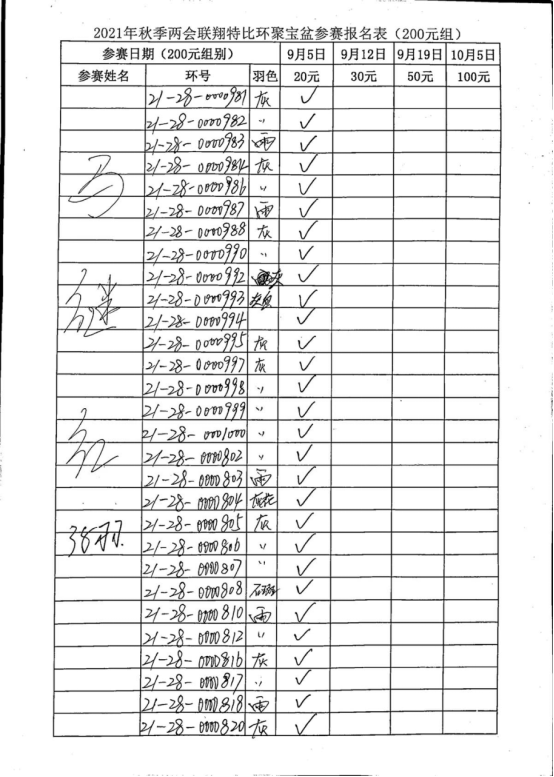 2021年秋季两会联翔特比环聚宝盆参赛报名表（200元组）
参赛日期（200元组别） 9月5日 9月12日 9月19日 10月5日
参赛姓名 环号 羽色 20元 30元 50元 100元
21-28-0000981 灰 ✓
21-28-0000982 〃 ✓
21-28-0000983 雨 ✓
21-28-0000984 灰 ✓
21-28-0000986 〃 ✓
21-28-0000987 雨 ✓
21-28-0000988 灰 ✓
21-28-0000990 〃 ✓
21-28-0000992 ✓
21-28-0000993 ✓
21-28-0000994 ✓
21-28-0000995 灰 ✓
21-28-0000997 灰 ✓
21-28-0000998 〃 ✓
21-28-0000999 〃 ✓
21-28-0001000 〃 ✓
21-28-0000802 〃 ✓
21-28-0000803 雨 ✓
21-28-0000804 灰花 ✓
21-28-0000805 灰 ✓
38羽
21-28-0000806 〃 ✓
21-28-0000807 〃 ✓
21-28-0000808 ✓
21-28-0000810 雨 ✓
21-28-0000812 〃 ✓
21-28-0000816 灰 ✓
21-28-0000817 〃 ✓
21-28-0000818 雨 ✓
21-28-0000820 灰 ✓